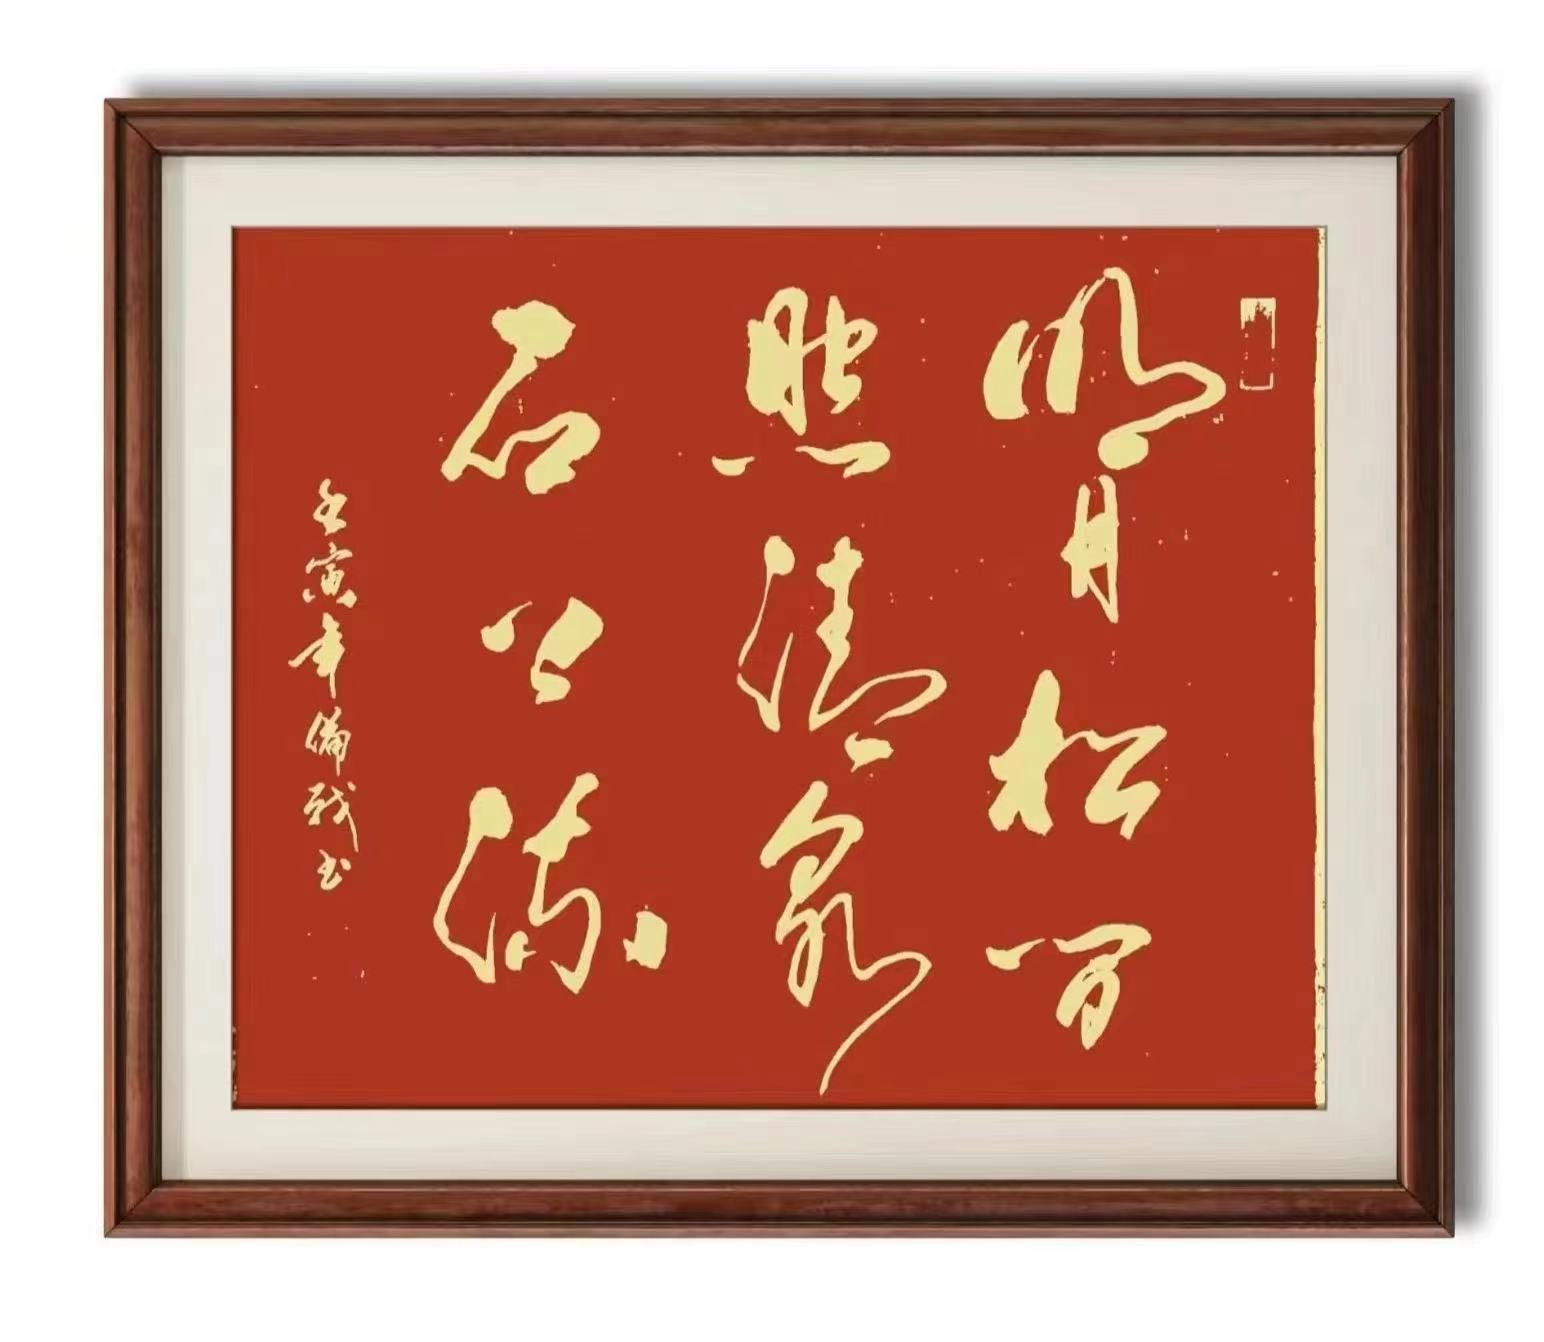 明月松间
照清泉
石上流
壬寅年備战书